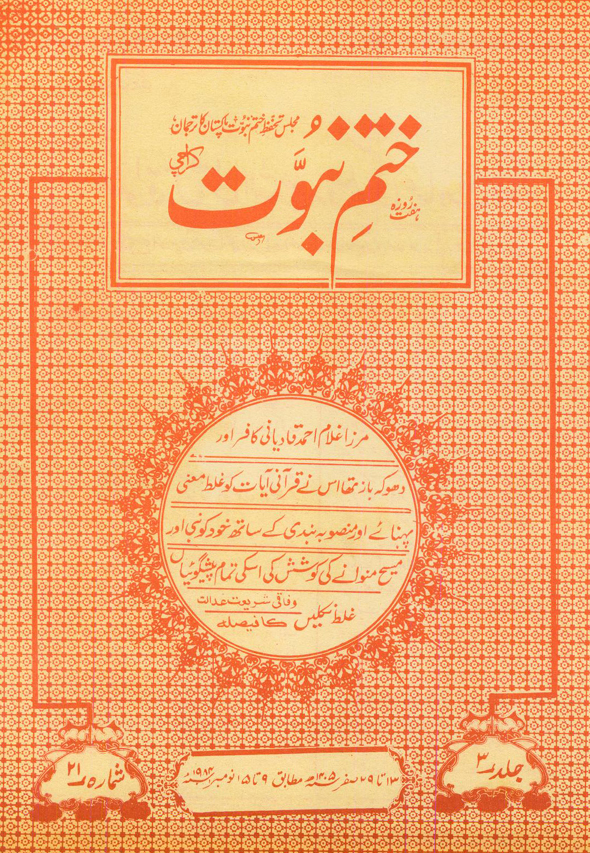 مجلس تحفظ ختم نبوت پاکستان کا ترجمان
ہفت روزہ
ختمِ نبوَّت
کراچی
مرزا غلام احمد قادیانی کافر اور
دھوکہ باز تھا اس نے قرآنی آیات کو غلط معنی
پہنائے اور منصوبہ بندی کے ساتھ خود کو نبی اور
مسیح منوانے کی کوشش کی اسکی تمام پیشگوئیاں
غلط نکلیں
وفاقی شریعت عدالت
کا فیصلہ
جلد ۳
شمارہ ۲۱
صفر ۱۴۰۵ھ مطابق ۹ تا ۱۵ نومبر ۱۹۸۴ء